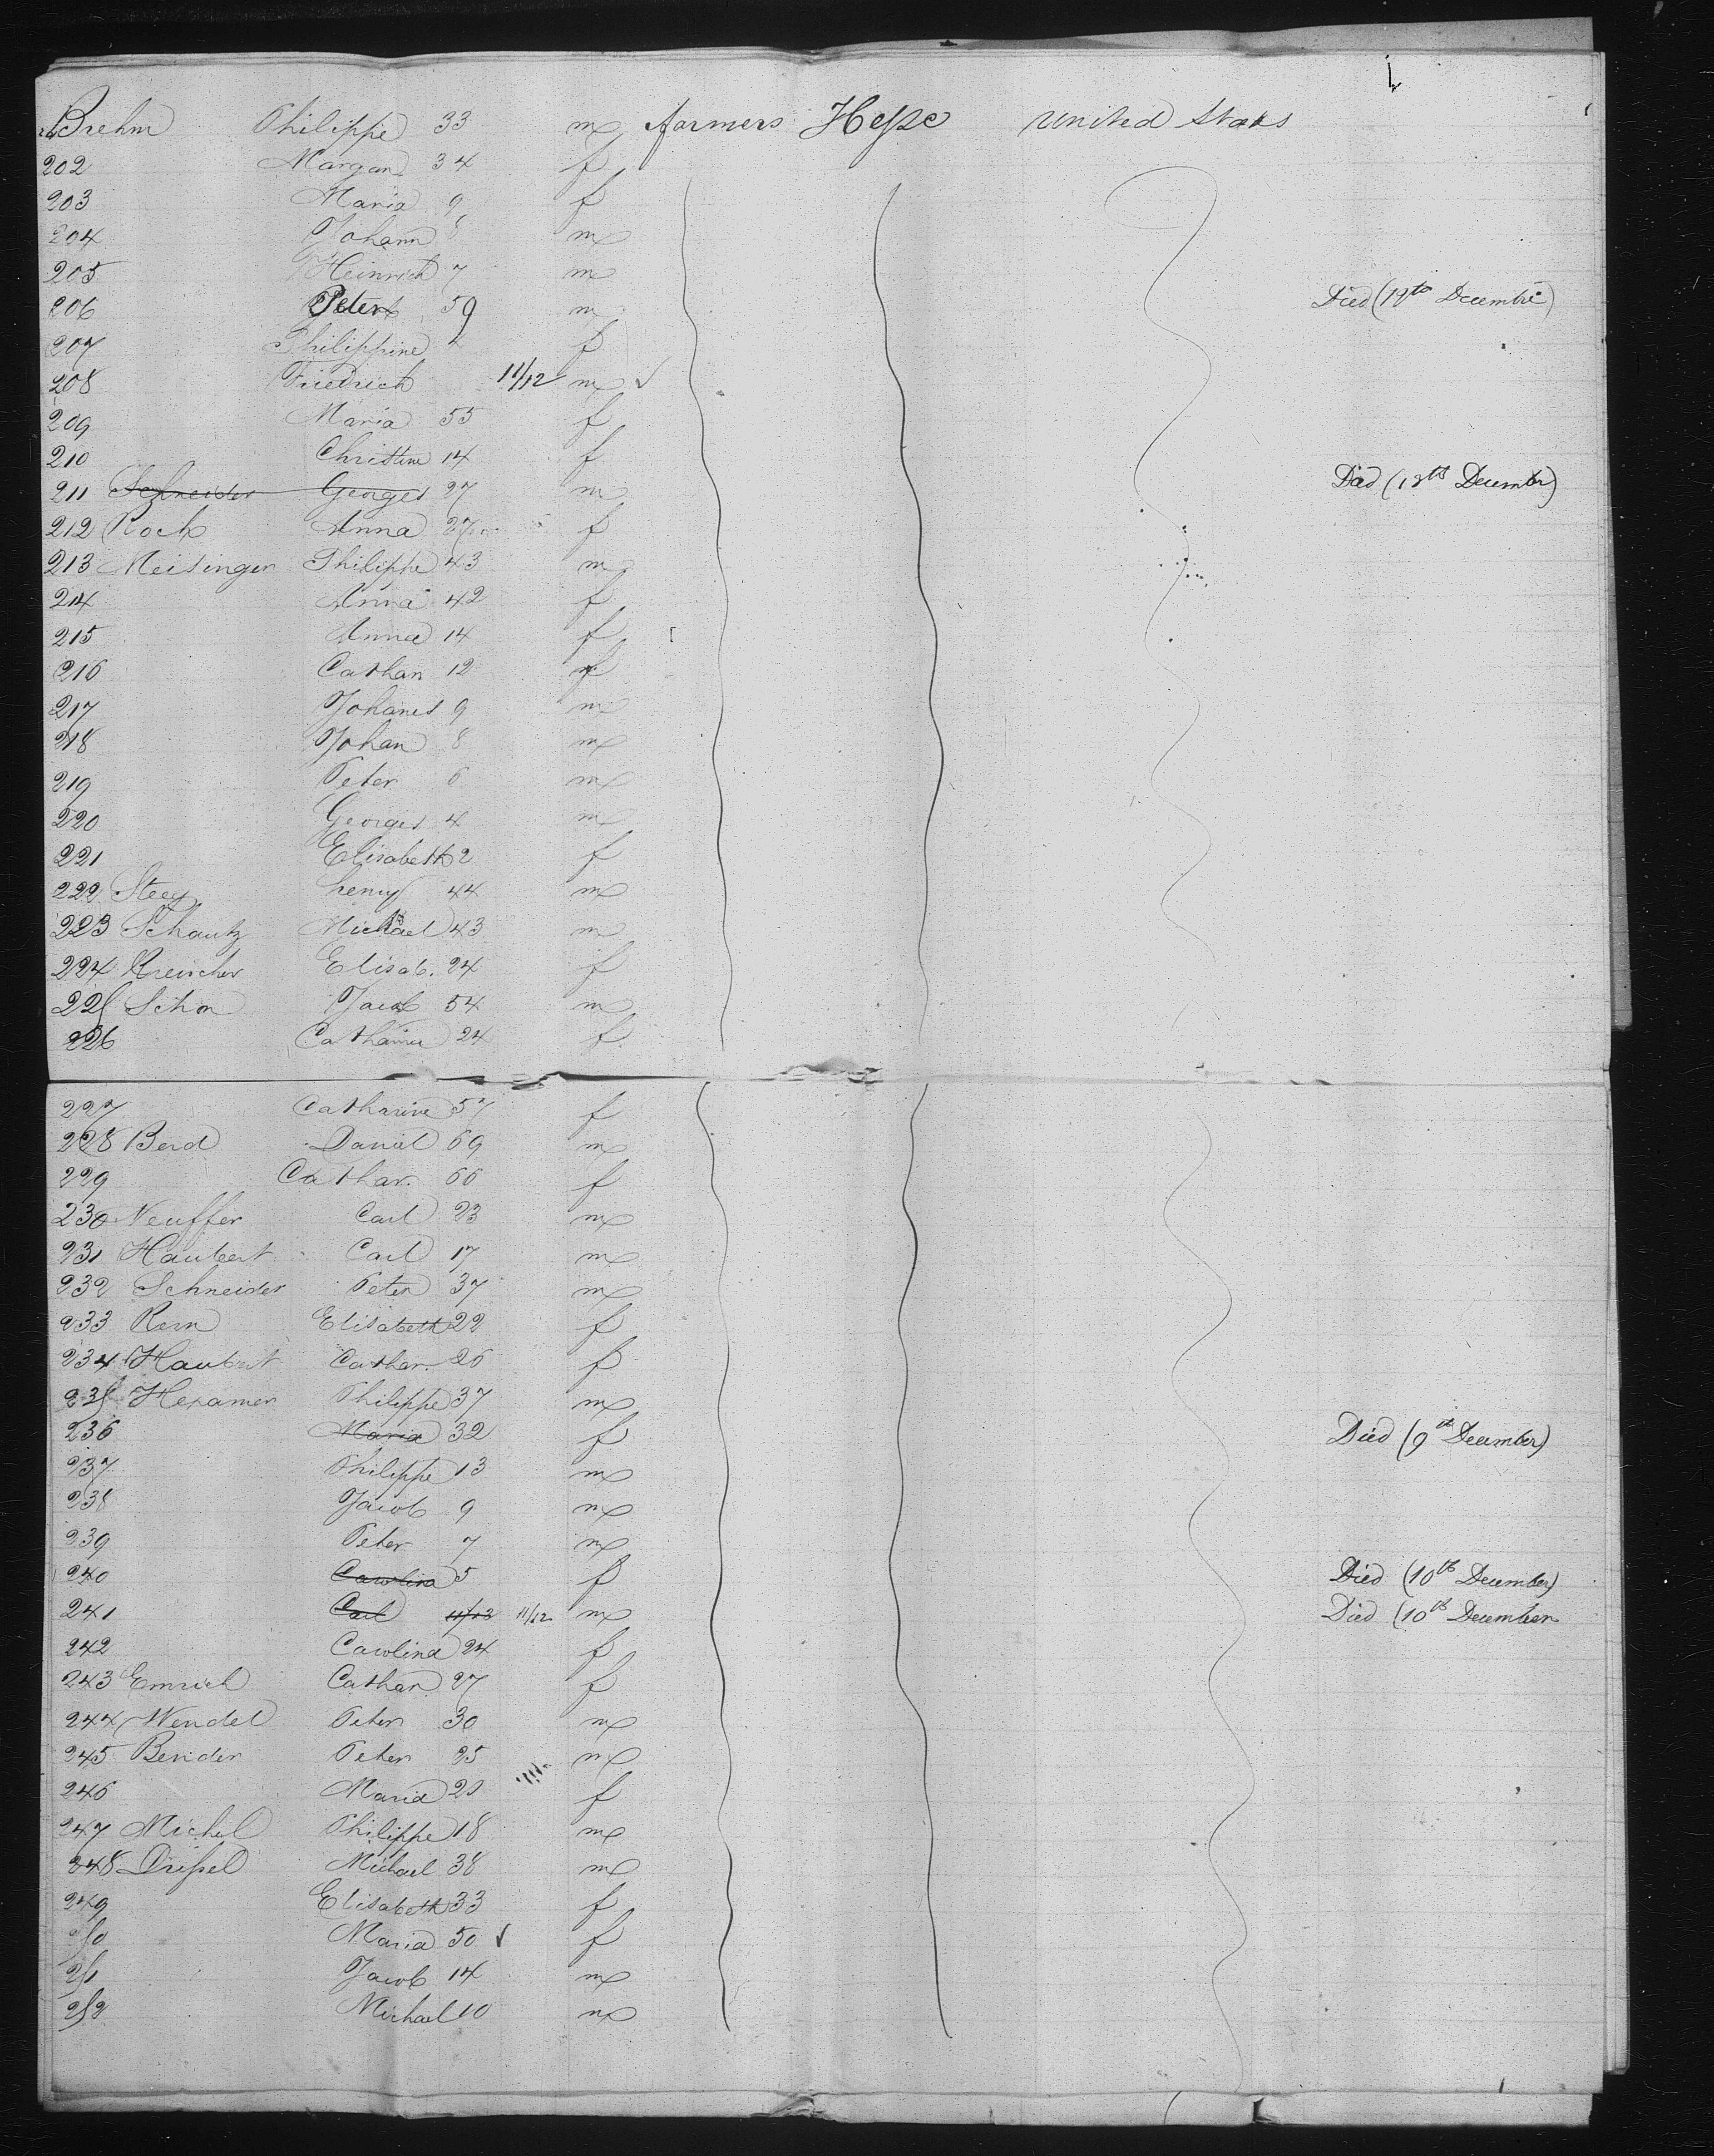 Brehm Philippe 33 m farmers Hesse united States
202 Margar 34 f
203 Maria 9 f
204 Johann 8 m
205 Heinrich 7 m
206 Peter 59 m Died (19th Decembre)
207 Philippine f
208 Friedrich 11/12 m
209 Maria 55 f
210 Christine 14 f
211 Schneider Georges 27 m Died (13th December)
212 Koch Anna 27 f
213 Meisinger Philippe 43 m
214 Anna 42 f
215 Anna 14 f
216 Cathar 12 f
217 Johanes 9 m
218 Johan 8 m
219 Peter 6 m
220 Georges 4 m
221 Elisabeth 2 f
222 Steeg henry 44 m
223 Schautz Michael 43 m
224 Elisab. 24 f
225 Schon Jacob 54 m
226 Catharine 24 f
227 Catharine 57 f
228 Berd Daniel 69 m
229 Cathar. 66 f
230 Neuffer Carl 23 m
231 Haubert Carl 17 m
232 Schneider Peter 37 m
233 Kern Elisabeth 22 f
234 Haubert Cathar. 26 f
235 Hexamer Philippe 37 m
236 Maria 32 f Died (9th December)
237 Philippe 13 m
238 Jacob 9 m
239 Peter 7 m
240 Carolina 5 f Died (10th December)
241 Carl 11/12 11/12 m Died (10th December
242 Carolina 24 f
243 Emrich Cathar 27 f
244 Wendel Peter 30 m
245 Bender Peter 25 m
246 Maria 20 f
247 Michel Philippe 18 m
248 Drissel Michael 38 m
249 Elisabeth 33 f
250 Maria 50 f
251 Jacob 14 m
252 Michael 10 m